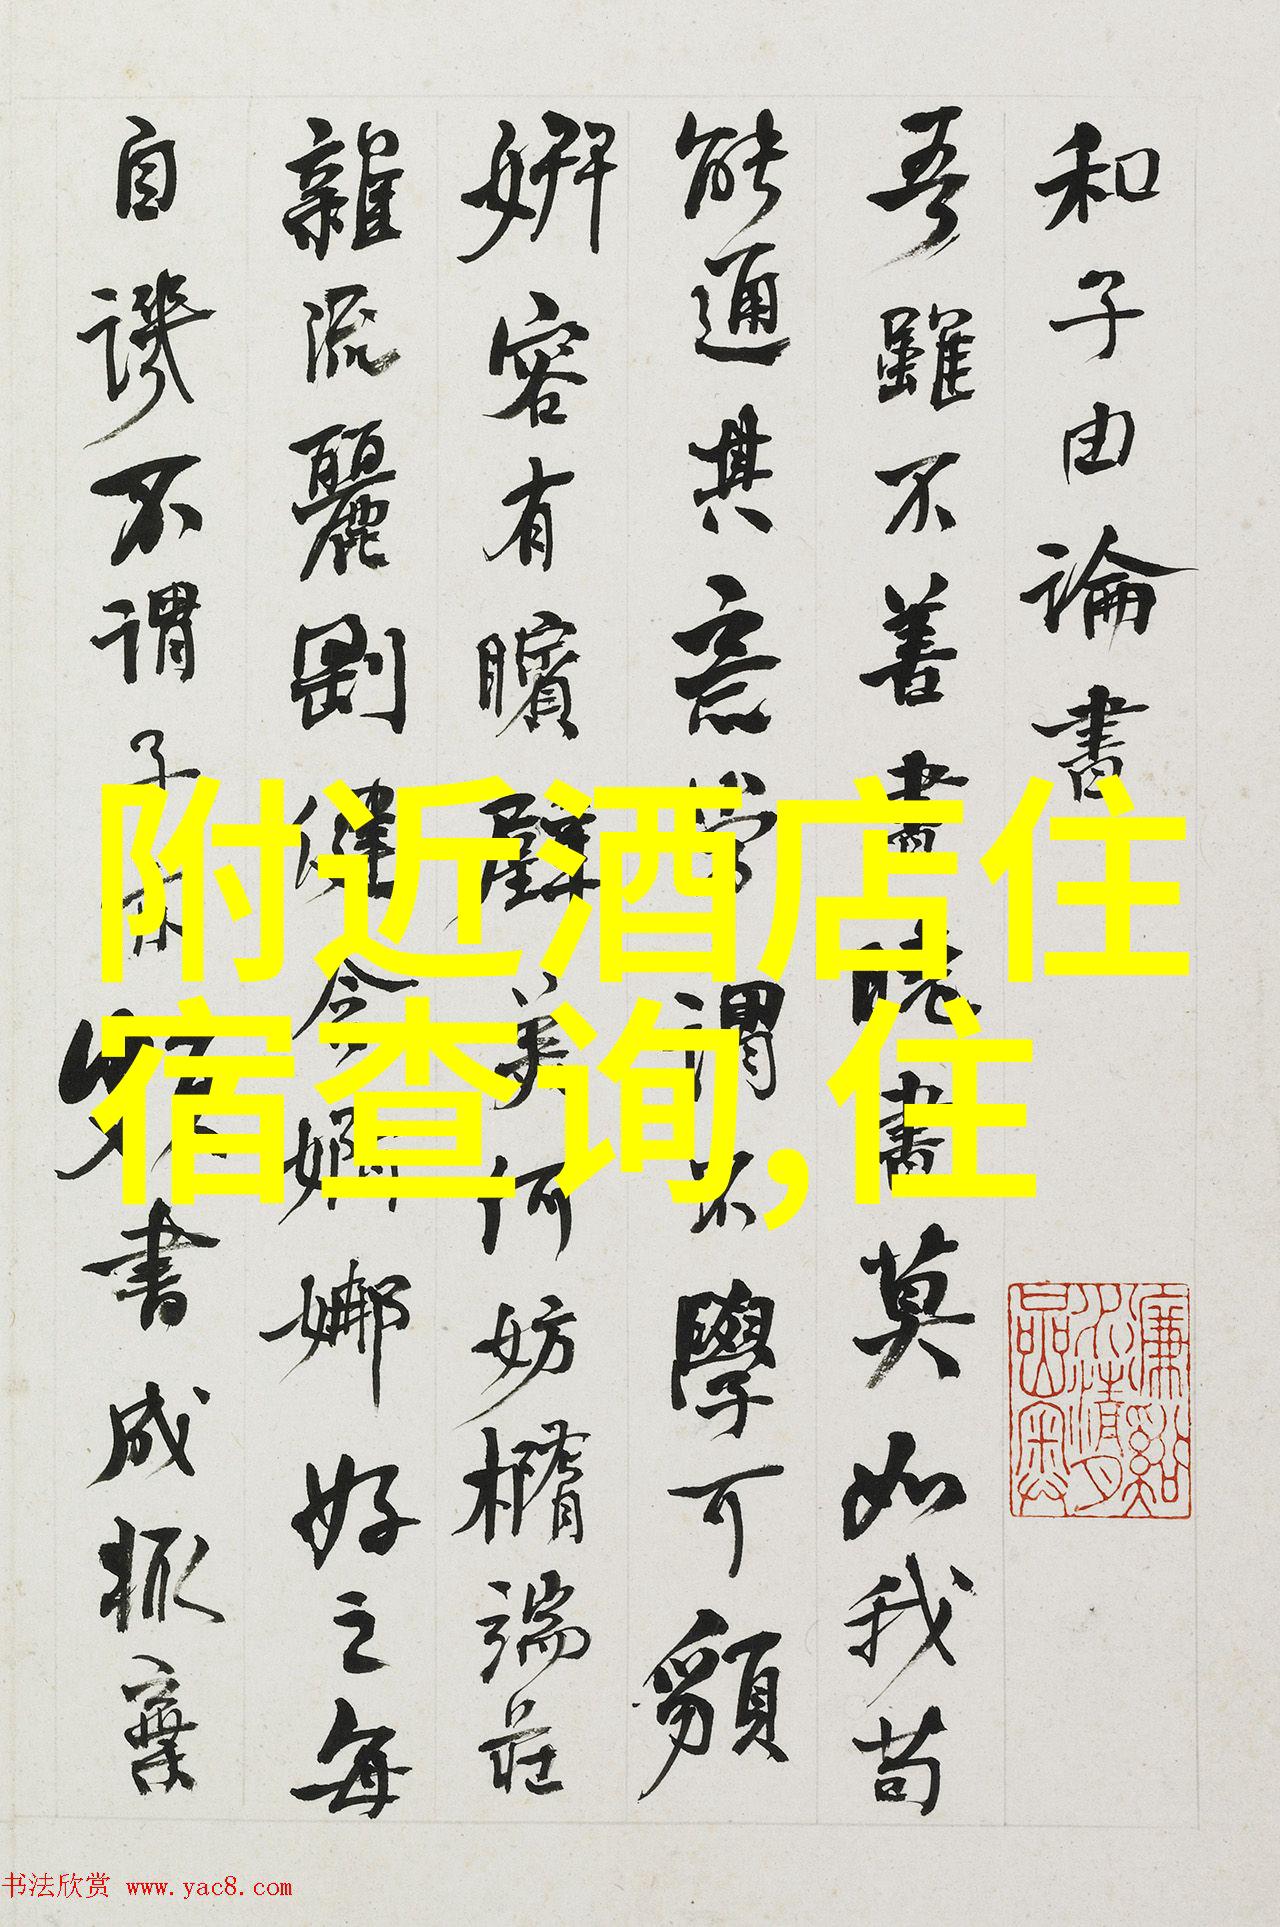 和子由論書
吾雖不善書曉書莫如我苟
能通其意常謂不學可䫉
姸容有矉璧美何妨橢端莊
雜流麗剛健含婀娜好之每
自譏不謂子亦頗書成輒棄
附近酒店住
宿查询,住
书法欣赏 www.yac8.com